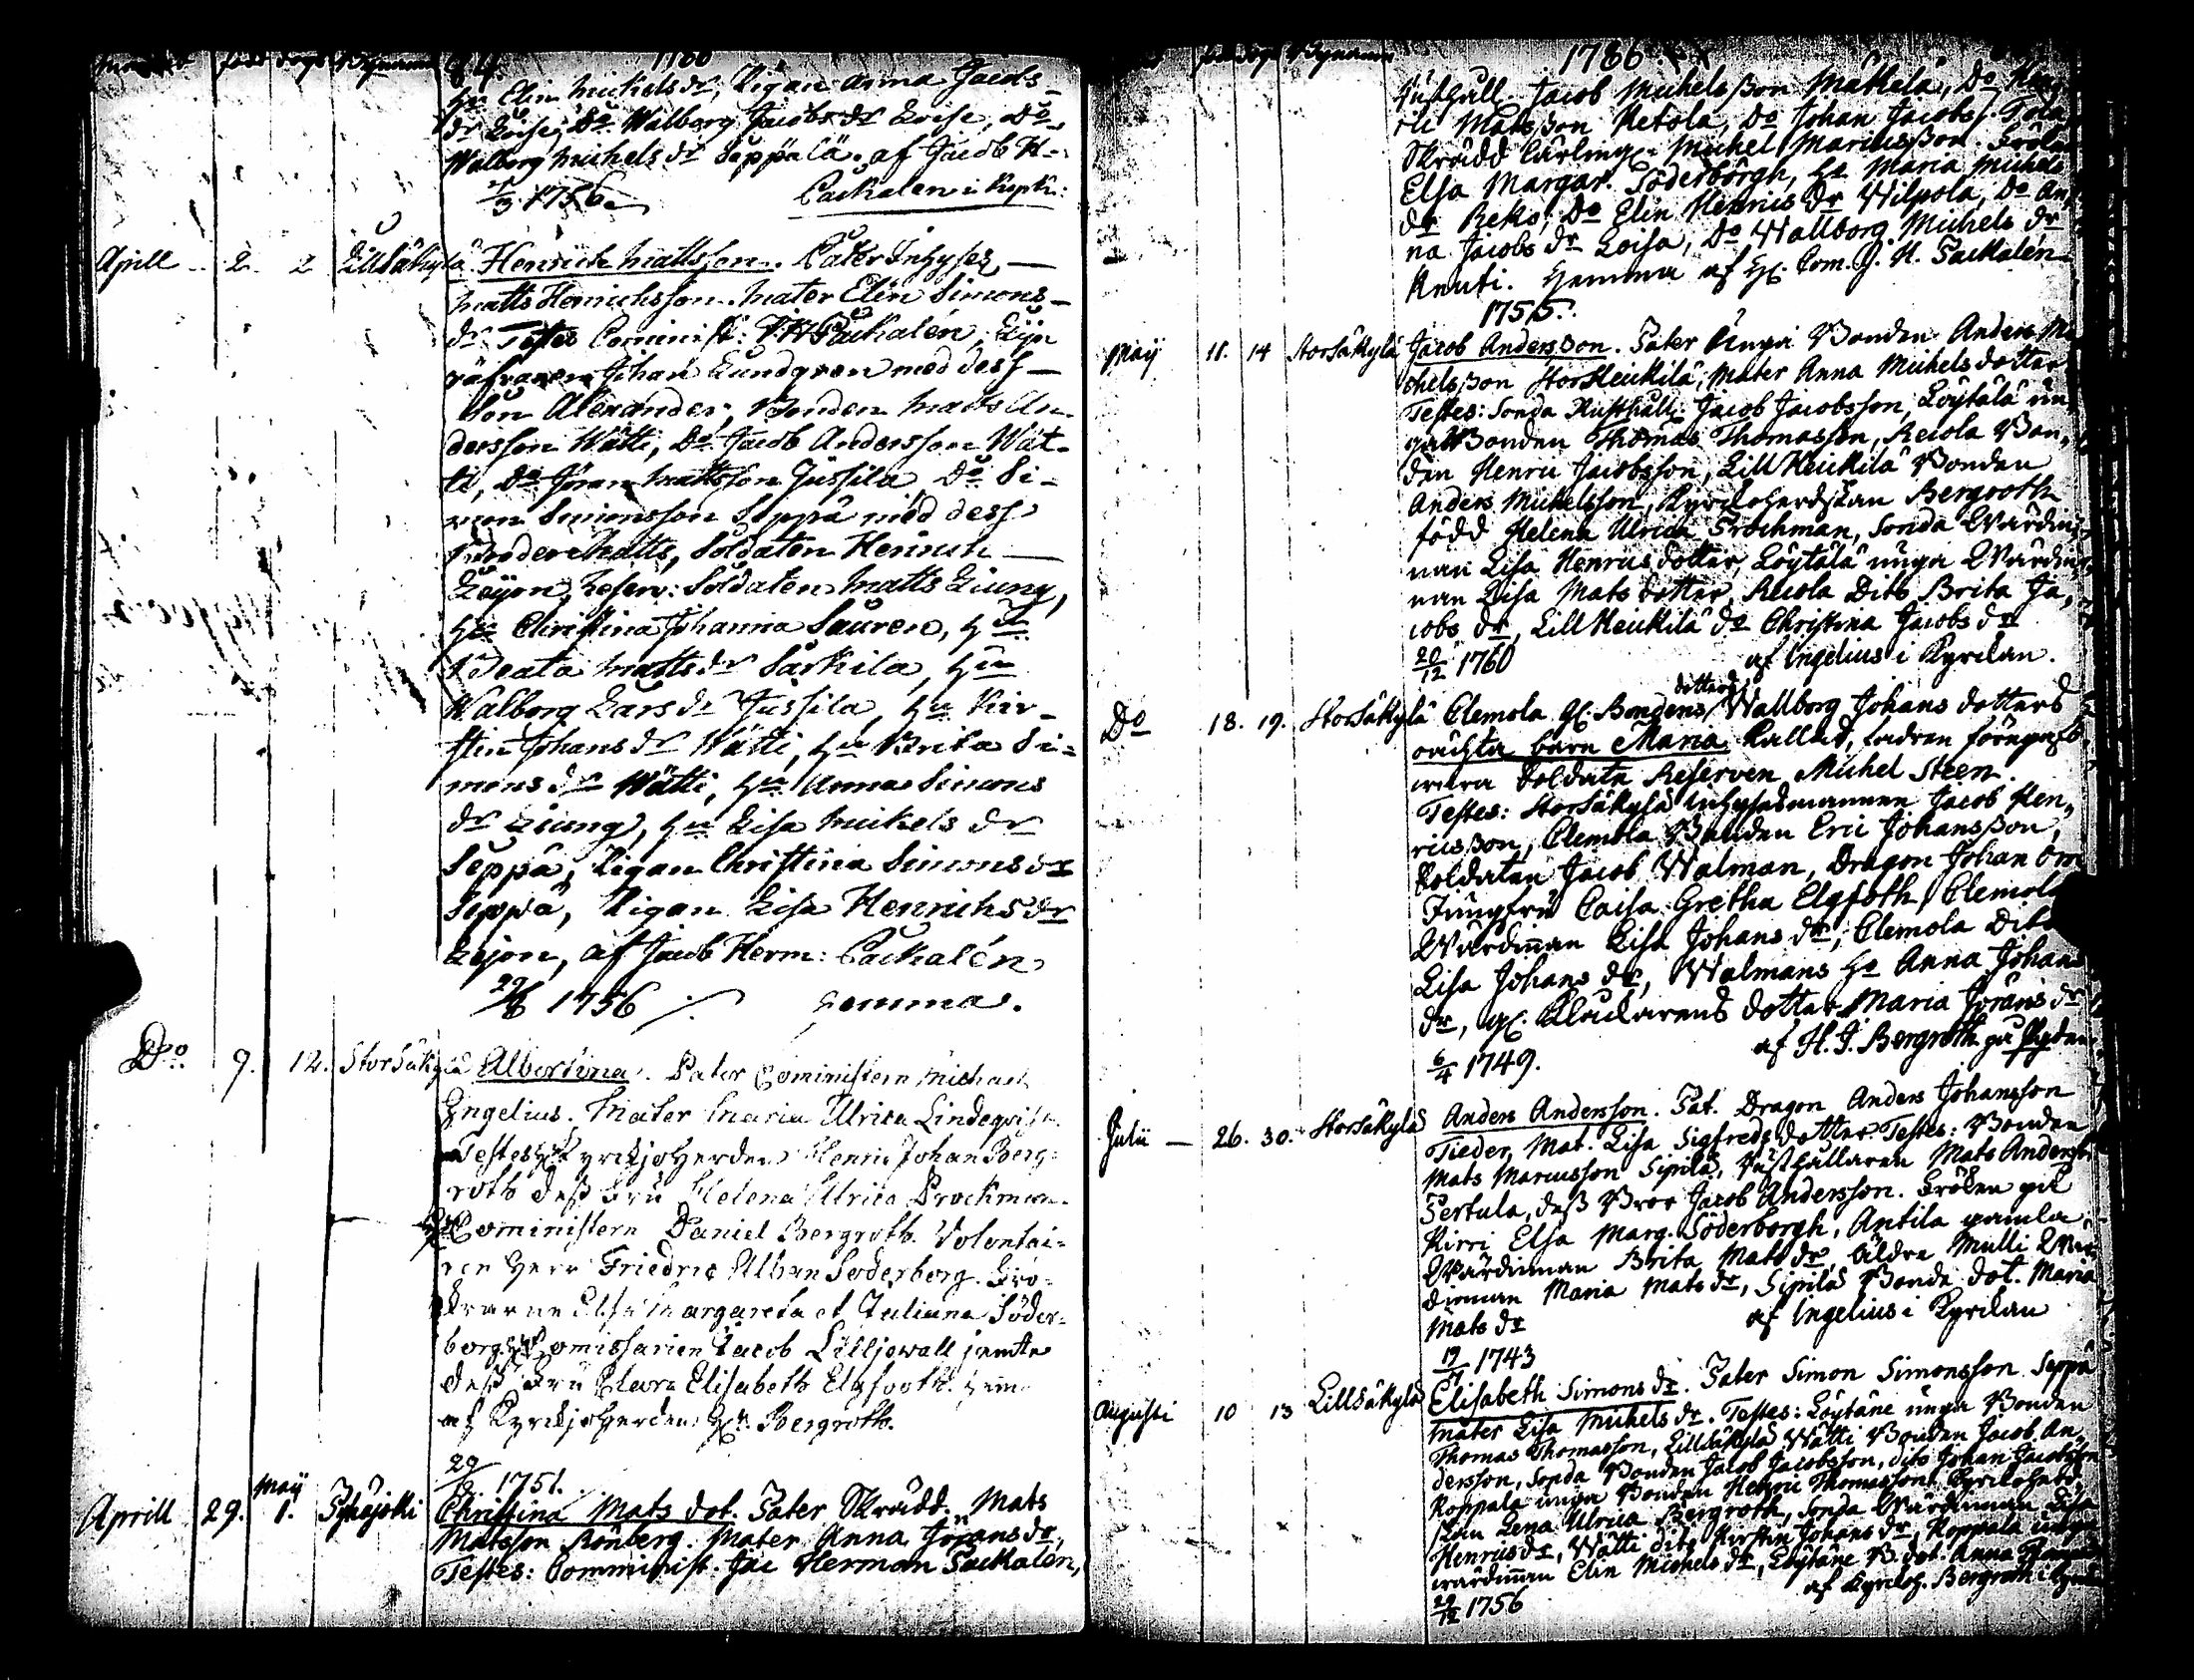 84. 1786
Hu Elin Mickels dr, Pigan Anna Jacobs
dr Loise, Do Walborg Jacobs dr Loise, Do
Walborg Michels dr Seppälä. af Jacob H:
3 1756. Packalen i Kyrk:
Aprill 2. 2 Lillsäkylä Henrich Mattsson. Pater Inhyses
Matts Henrichsson. Mater Elin Simons
dr Testes Cominist: J: H Packalén,
Johan Lundgren med dess
Son Alexander, Bonden Matts An
dersson Wätti, Do Jacob Andersson Wät-
ti, Do Jöran Mattsson Jussila Do Si-
mon Simonsson Seppä med dess
Broder Matts, Soldaten Henrich
Leijon, Reserv: Soldaten Matts Liung,
Hu Christina Johanna Lauren, Hu
Beata Matts dr Särkilä, Hu
Walborg Lars dr Jussila, Hu Kir-
stin Johans dr Wätti, Hu Brita Si=
mons dr Wätti, Hu Anna Simons
dr Liung, Hu Lisa Mickels dr
Seppä, Pigan Christina Simons dr
Seppä, Pigan Lisa Henrichs dr
Leijon, af Jacob Herm: Packalén
29/6 1756 hemma.
Do 9. 12. Storsäkylä Albertina. Pater Cominister Michael
Ingelius. Mater Maria Ulrica Lindeqvist.
Testes Hr Kyrckjoherden Henric Johan Berg=
roth dess Fru Helena Ulrica Prockman
Hr Cominister Daniel Bergroth. Volontai=
ren Herr Friedric Alban Söderborg. Frö=
knarne Elsa Margareta et Juliana Söder=
borg Hr Comissarien Jacob Lilljewall jemte
dess Fru Clara Elisabeth Elgfooth. hem
af Kyrckjoherden Hr. Bergroth.
29/ 1751.
Aprill 29. Maij 1. Pyhäjoki Christina Mats dot. Pater Skrädd. Mats
Matsson Rönberg. Mater Anna Jörans dr,
Testes: Comminist. Jac Herman Packalén,
1786
Rusthåll. Jacob Michelsson Mäkelä, Do Hen
ric Matsson Ketola, Do Johan Jacobs
Skrädd Lärling. Michel Marcusson. Fröken
Elsa Margar. Söderborgh, Hu Maria Michels
dr Reko, Do Elin Henrics dr Wilpola, Do An
na Jacobs dr Loisa, Do Wallborg Michels dr
Knuti. Hemma af H. Com. J. H. Packalén
1755.
Maij 11. 14 Storsäkylä Jacob Andersson. Pater Unga Bonden Anders Mi
chelsson Storheickilä, Mater Anna Michels dotter
Testes: Sonda Rusthåll. Jacob Jacobsson, Löytälä un
ga Bonden Thomas Thomasson, Reiola Bon,
den Henric Jacobsson, Lill Heickilä Bonden
Anders Michelsson, Kyrckoherdskan Bergrooth
född Helena Ulrica Prochman, Sonda Wärdin
nan Lisa Henrics dotter, Löytälä unga Wärdin
nan Lisa Mats dotter, Reiola Dito Brita Ja,
cobs dr, Lill Heickilä dr Christina Jacobs dr
20/12 1760 af Ingelius i Kyrckan.
Do 18. 19. Storsäkylä Clemola gl. Bondens dotters Wallborg Johans dotters
oächta barn Maria kallad, fadren förugifs
wara Soldats Reserven Michel Steen.
Testes: Storsäkylä Inhysesmannen Jacob Hen,
ricsson, Clemola Bonden Eric Johansson,
Soldaten Jacob Walman, Dragon Johan
Jungfru Caisa Gretha Elgfoth, Clemola
Wärdinnan Lisa Johans dr, Clemola Dito
Lisa Johans dr, Walmans Hu Anna Johans
dr, gl. Klockarens dotter Maria Jörans dr
6/4 1749. af H. J. Bergroth
Julii 26. 30. Storsäkylä Anders Andersson. Pat. Dragon Anders Johansson
Tieder, Mat. Lisa Sigfreds dotter. Testes: Bonden
Mats Marcusson Sipilä, Rusthållaren Mats Anders
Pertula, dess Bror Jacob Andersson. Fröken
Kirri Elsa Marg. Söderborgh, Antila gamla
Wärdinnan Brita Mats dr, äldre Mulli Wär
dinnan Maria Mats dr, Sipilä Bonde dot. Maria
Mats dr af Ingelius i Kyrckan
19/7 1743
Augusti 10 13 Lillsäkylä Elisabeth Simons dr. Pater Simon Simonsson Seppä
Mater Lisa Michels dr. Testes: Löytäne unga Bonden
Thomas Thomasson, Lillsäkylä Wätti Bonden Jacob An,
dersson, Sonda Bonden Jacob Jacobsson, dito Johan Jacobsson
Koppala unga Bonden Henric Thomasson, Kyrckoherd
skan Lena Ulrica Bergroth, Sonda Wärdinnan Lisa
Henrics dr, Wätti dito Kirstin Johans dr, Koppala unga
wärdinnan Elin Michels dr, Löytäne B. dot. Anna
29/12 1756 af Kyrckoh. Bergroth i Kyrck